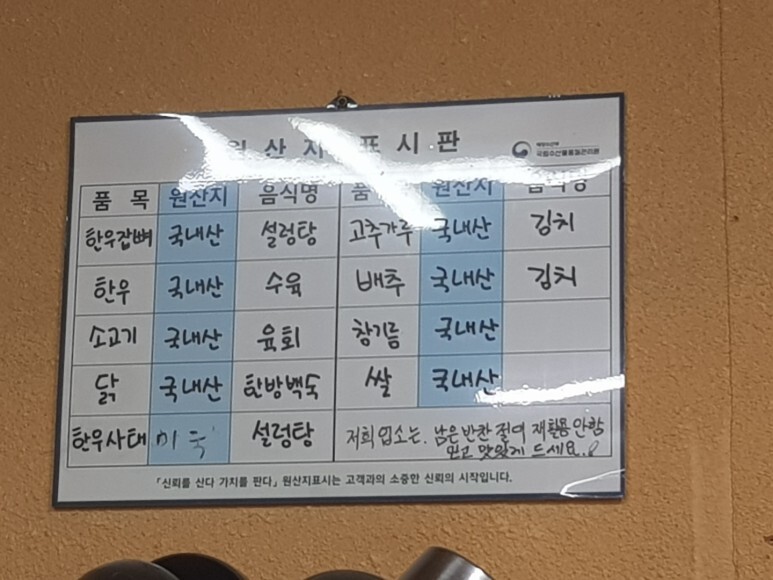 원 산 지 표 시 판
국립농산물품질관리원
품 목 원산지 음식명 품 원산지 음식명
한우잡뼈 국내산 설렁탕 고추가루 국내산 김치
한우 국내산 수육 배추 국내산 김치
소고기 국내산 육회 참기름 국내산
닭 국내산 한방백숙 쌀 국내산
한우사태 미국 설렁탕 저희 업소는. 남은반찬 절대 재활용안함
믿고 맛있게 드세요.
「신뢰를 산다 가치를 판다」 원산지표시는 고객과의 소중한 신뢰의 시작입니다.